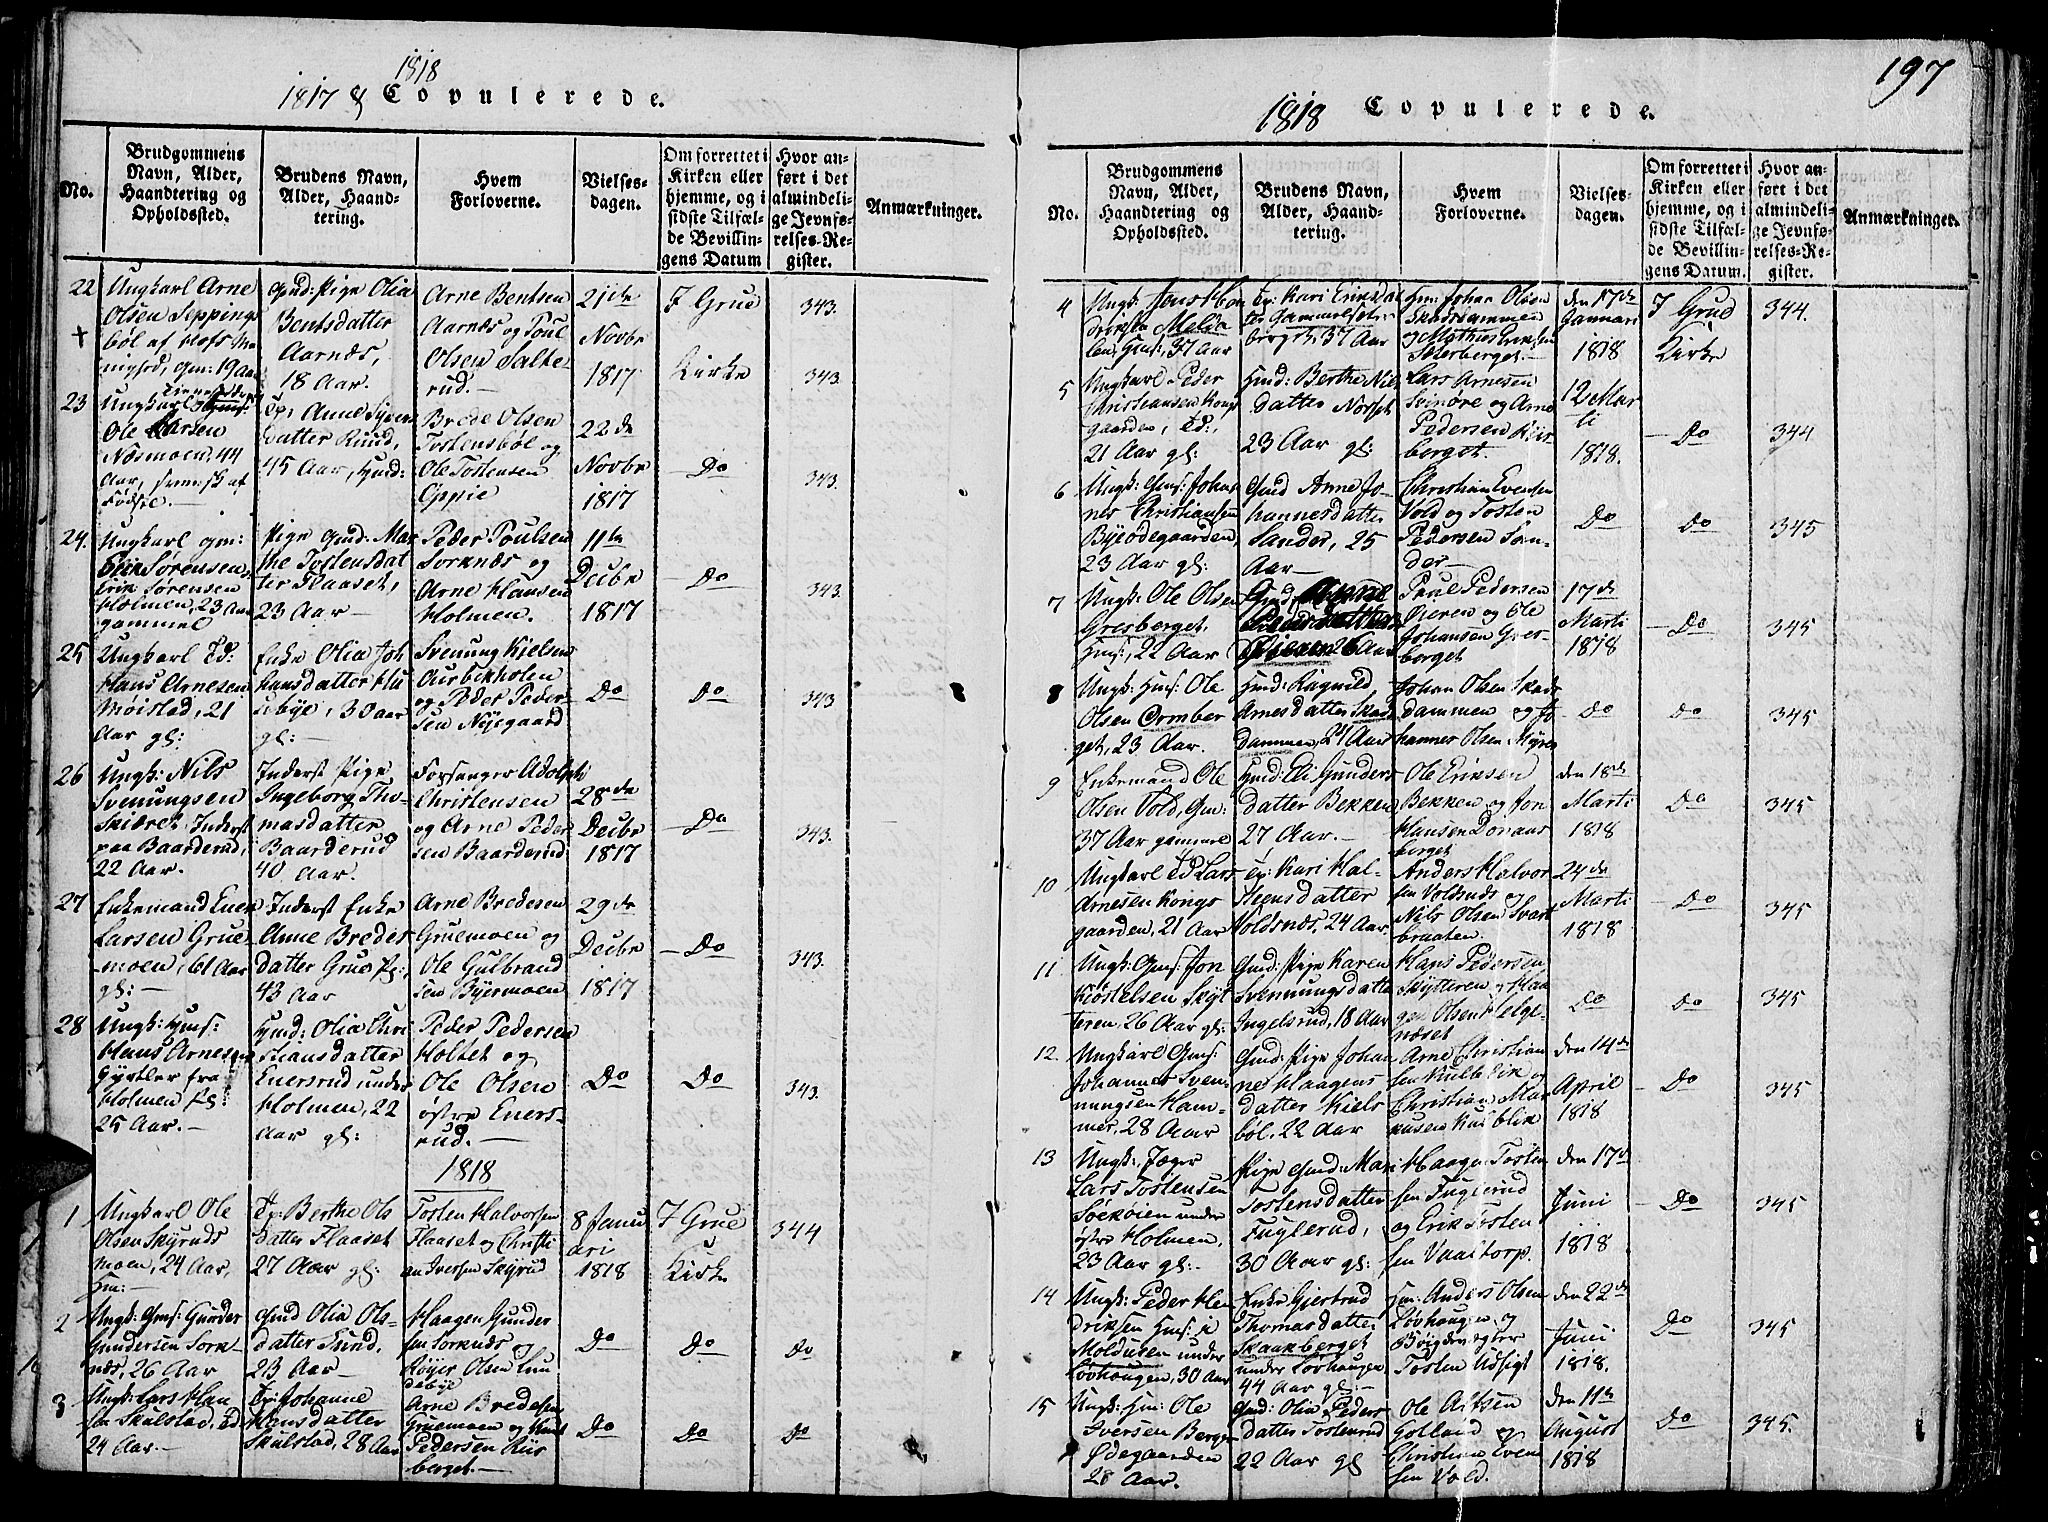 1818
1817 & Copulerede.
No.
Brudgommens
Navn, Alder,
Haandtering og
Opholdssted.
Brudens Navn,
Alder, Haand-
tering.
Hvem
Forloverne.
Vielses-
dagen.
Om forrettet i
Kirken eller
hjemme, og i
sidste Tilfæl-
de Bevillin-
gens Datum
Hvor an-
ført i det
almindeli-
ge Jevnfø-
relses-Re-
gister.
Anmærkninger.
22
Ungkarl Arne
Olsen Sepping
bøl af Hofs
19 Aar
Gmd: Pige Olia
Bentsdatter
Aarnæs,
18 Aar.
Arne Bentsen
Aarnæs og Poul
Olsen Salte-
rud.
21de
Novbr
1817
I Grue
Kirke
343.
343
23
Ungkarl
Ole Larsen
Næsmoen, 44
Aar, svensk af
Fødsel.
Anne
datter Ruud,
45 Aar, Hmd:
Brede Olsen
Tostensbøl og
Ole Tostensen
Oppie
22de
Novbr
1817
Do
343.
24.
Ungkarl Gm:
Erik Sørensen
Holmen, 23 Aar
gammel
Pige Gmd: Mar
the Tostensdat
ter Flaaset,
23 Aar
Peder Poulsen
Sorknæs og
Arne Hansen
Holmen.
11te
Decbr
1817
Do
343.
25
Ungkarl Td:
Hans Arnesen
Moistad, 21
Aar gl:
Enke Olia Joh
hansdatter Hu
sebye, 30 aar
gl:
Svenung Kielsen
Aurbekholen
og Peder Peder
sen Nyegaard
Do
Do
343
26
Ungk: Nils
Svenungsen
Skiæret, Inderst
paa Baarderud,
22 Aar.
Inderst Pige
Ingeborg Tho-
masdatter
Baarderud
40 Aar.
Forsanger Adolph
Christensen
og Arne Peder
sen Baarderud
28de
Decbr
1817
Do
343.
27
Enkemand Ener
Larsen Grue-
moen, 61 Aar
gl:
Inderst Enke
Anne Breder
datter Grue
43 Aar
Arne Bredesen
Gruemoen og
Ole Gulbrand
sen Byermoen
29de
Decbr
1817
Do
343.
28
Ungk: Hms:
Hans Arnesen
Gyrtler fra
Holmen
25 Aar.
Hmd: Olia Chri
stiansdatter
Enersrud under
Holmen, 22
Aar gl:
Peder Pedersen
Holtet og
Ole Olsen
østre Eners-
rud.
Do
Do
343.
1818
1
Ungkarl Ole
Olsen Skyruds
moen, 24 Aar,
Hm:
Tp: Berthe Ols
datter Flaaset
27 Aar gl:
Tosten Halvorsen
Flaaset og Christi
an Iversen Skyrud
8 Janu
ari
1818
I Grue
Kirke
344
2
Ungk: Gms: Gunder
Gundersen Sork
næs, 26 Aar
Gmd Olia Ols-
datter Lund,
23 Aar
Haagen Gunder
sen Sorknæs og
Røyer Olsen Lun
debye
Do
Do
Do
3
Ungk: Lars Han
sen Skulstad, Td
24 Aar.
Tp: Johanne
Hansdatter
Skulstad, 28 Aar
Arne Bredesen
Gruemoen og Knut
Pedersen Riis
berget.
Do
Do
Do
197
1818 Copulerede.
No.
Brudgommens
Navn, Alder,
Haandtering og
Opholdssted.
Brudens Navn,
Alder, Haand-
tering.
Hvem
Forloverne.
Vielses-
dagen.
Om forrettet i
Kirken eller
hjemme, og i
sidste Tilfæl-
de Bevillin-
gens Datum.
Hvor an-
ført i det
almindeli-
ge Jevnfø-
relses-Re-
gister.
Anmærkninger.
4
Ungk: Jens Hen
driksen Melda
len, Gms:, 37 Aar
Tp: Kari Eriksdat
ter Gammelsæter
berget, 37 Aar
Hm: Johan Olsen
Skasdammen
og Mathis Eriksen
Sæterberget.
den 17de
Januari
1818
I Grue
Kirke
344.
5
Ungkarl Peder
Christiansen Kongs
gaarden, Td:,
21 Aar gl:
Hmd: Berthe Nils
datter Norset
23 Aar gl:
Lars Arnesen
Svinøre og Arne
Pedersen Riis-
berget.
12 Mar
ti
1818.
Do
344
6
Ungk: Gms: Johan
nes Christiansen
Byeødegaarden,
23 Aar gl:
Gmd Anne Jo-
hannesdatter
Sander, 25
Aar
Christian Evensen
Vold og Tosten
Pedersen San-
der
Do
Do
345
7
Ungk: Ole Olsen
Gresberget,
Hms:, 22 Aar
Gmd: Anne
Poulsdatter
26 Aar
Poul Pedersen
Gieren og Ole
Johansen Gres-
berget
17de
Marti
1818
Do
345
8
Ungk: Hms: Ole
Olsen Ormber
get, 23 Aar.
Hmd: Ragnild
Arnesdatter Skas
dammen, 21 Aar
Johan Olsen Skas
dammen og Jo
hannes Olsen Myren
Do
Do
345
9
Enkemand Ole
Olsen Vold, Gm:
37 Aar gammel
Hmd: Eli Gunders
datter Bekken,
27, Aar.
Ole Eriksen
Bekken og Jon
Hansen Donaus
berget
den 18de
Marti
1818
Do
345
10
Ungkarl Td Lars
Arnesen Kongs
gaarden, 21 Aar
Tp: Kari Hal-
steensdatter
Voldsnæs, 24 Aar
Anders Halvor
sen Voldsnæs og
Nils Olsen Svart
braaten.
24de
Marti
1818
Do
345
11
Ungk: Gms: Jon
Kiøstelsen Skyt
teren, 26 Aar gl:
Gmd: Pige Karen
Svennungsdatter
Ingelsrud, 18 Aar
Hans Pedersen
Skytteren og Haa
gen Olsen Helge-
næset
Do
Do
345
12.
Ungkarl Gms:
Johannes Sven-
nungsen Ham-
mer, 28 Aar
Gmd: Pige Johan
ne Haagens
datter Kiels
bøl, 22 Aar
Arne Christian
sen Kulblik og
Christian Mar
kusen Kulblik
den 14de
April
1818
Do
345
13
Ungk: Jæger
Lars Tostensen
Soekoien under
østre Holmen,
23 Aar gl:
Pige Gmd: Mari
Tostensdatter
Fuglerud,
30 Aar gl:
Haagen Tosten
sen Fuglerud
og Erik Tosten
sen Vaaltorp.
den 17de
Juni
1818
Do
345
14
Ungk: Peder Hen
driksen Hms: i
Moldusen under
Løvhaugen, 30 Aar
Enke Gjertrud
Thomasdatter
Skaakberget
under Løvhaugen
44 Aar gl:
Hm: Anders Olsen
Løvhaugen og
Tosten Udsigt
den 22de
Juni
1818.
Do
345
15
Ungk: Hm: Ole
Iversen Berger
Ødegaarden
28 Aar.
Gmd: Olia Peders
datter Tostenrud
22 Aar gl
Ole Alfsen
Gotland og
Christian Even
sen Vold.
den 11te
August
1818
Do
345.